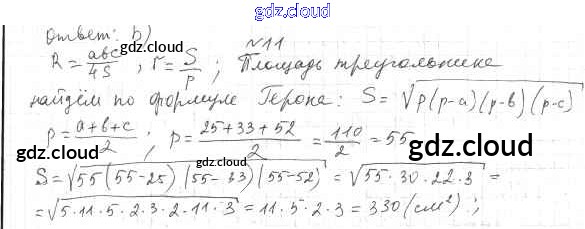 gdz.cloud
ответ: b)
№11
R = abc/4S, r = S/p; Площадь треугольника
gdz.cloud
найдём по формуле Герона: S = √p(p-a)(p-b)(p-c)
p = a+b+c/2; p = 25+33+52/2 = 110/2 = 55
gdz.cloud
gdz.cloud
S = √55(55-25)(55-33)(55-52) = √55·30·22·3 =
= √5·11·5·2·3·2·11·3 = 11·5·2·3 = 330 (см²);
gdz.cloud
gdz.cloud